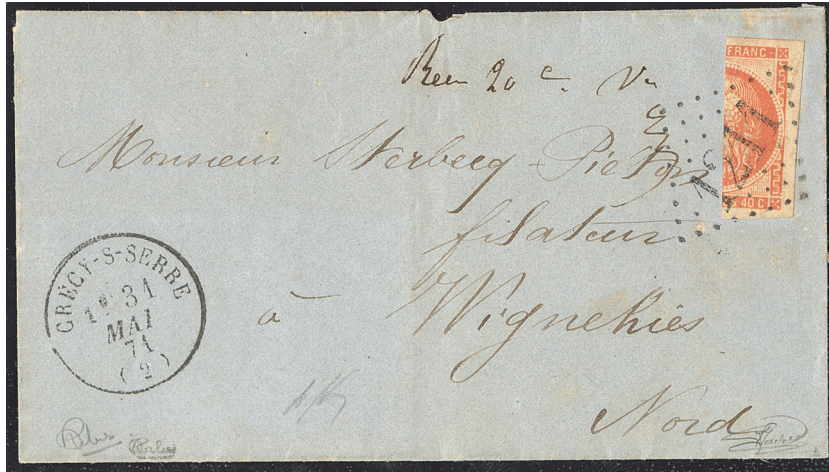 FRANC
Reçu 20 c.
1211
40 C
Monsieur Sterbecq-Piéton
filateur
à Wignehies
Nord
CRÉCY-S-SERRE
1E 31
MAI
71
(2)